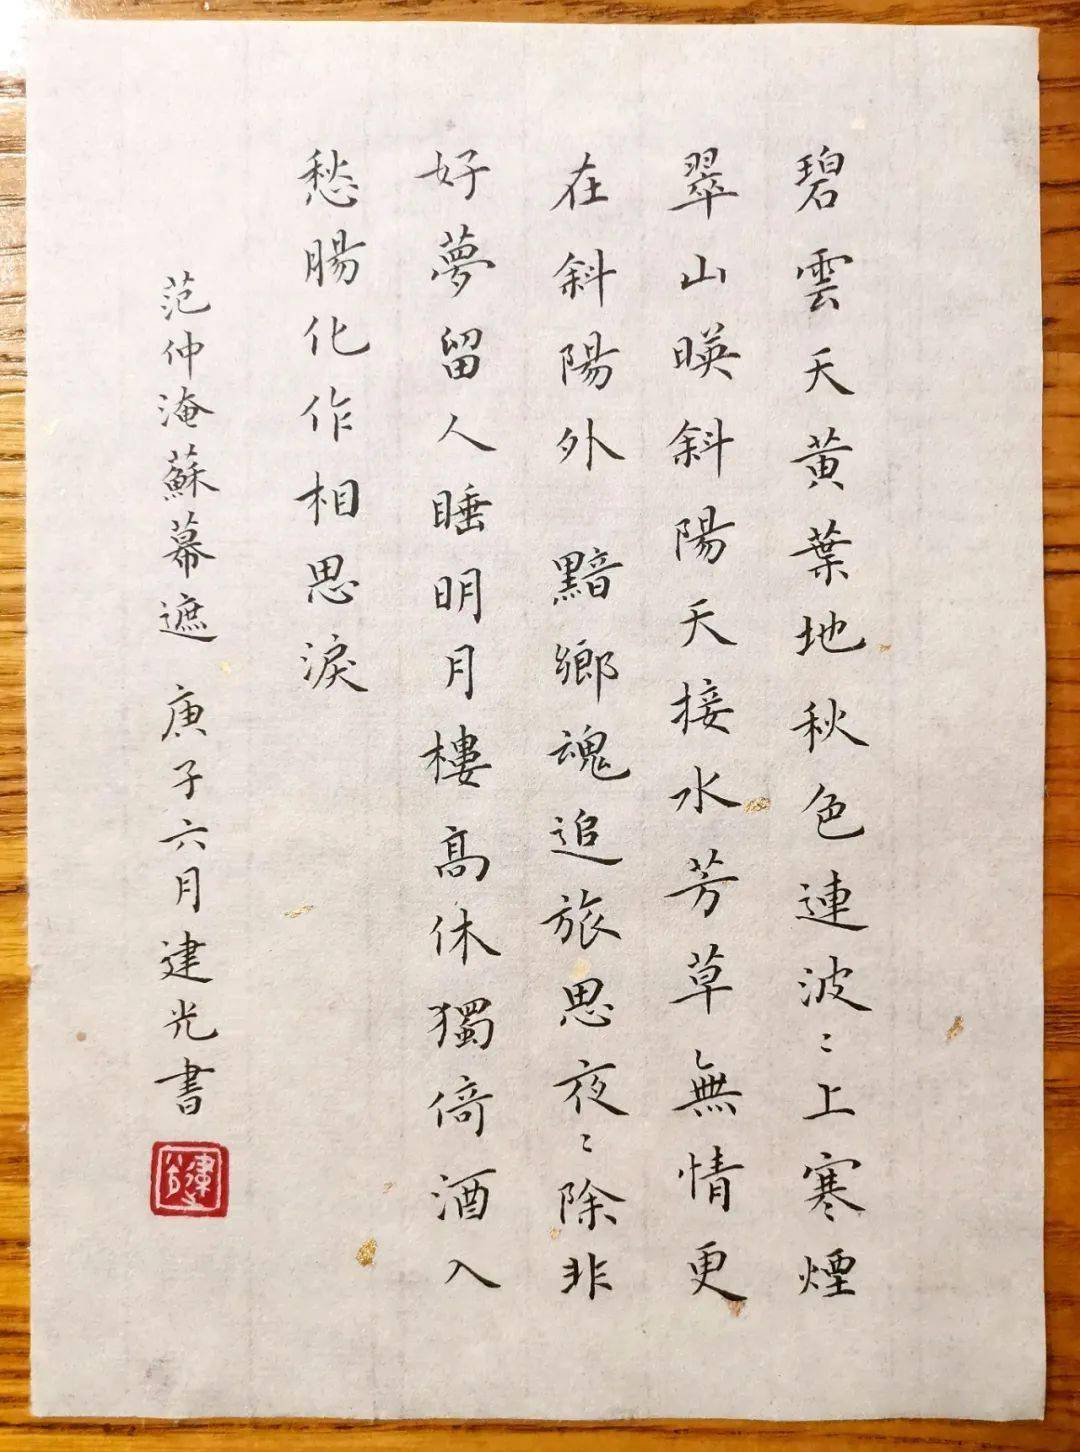 碧雲天黃葉地秋色連波〻上寒煙
翠山暎斜陽天接水芳草無情更
在斜陽外 黯鄉魂追旅思夜〻除非
好夢留人睡明月樓高休獨倚酒入
愁腸化作相思淚
范仲淹蘇幕遮 庚子六月建光書